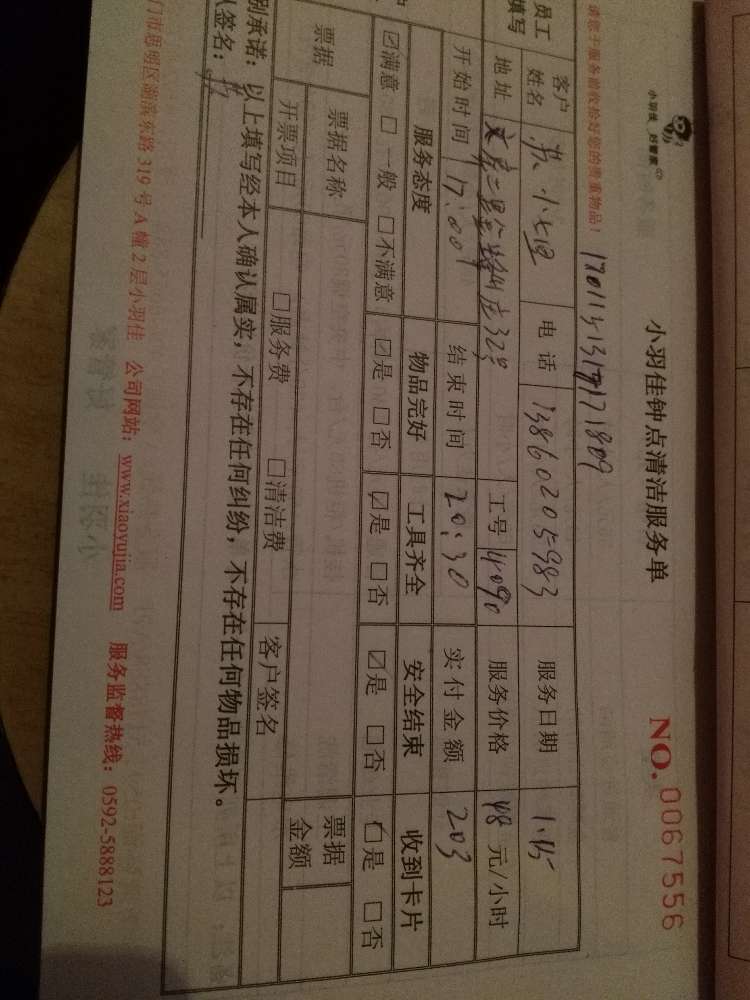 小羽佳 好管家
小羽佳钟点清洁服务单
NO. 0067556
请您于服务前收拾好您的贵重物品!
员工填写
客户姓名 电话 13860205983 服务日期
地址 工号 4090 服务价格 48 元/小时
开始时间 17:00 结束时间 20:30 实付金额 203
服务态度 物品完好 工具齐全 安全结束 收到卡片
☑满意 □一般 □不满意 ☑是 □否 ☑是 □否 ☑是 □否 ☑是 □否
票据 票据名称 票据金额
开票项目 □服务费 □清洁费 客户签名
别承诺:以上填写经本人确认属实,不存在任何纠纷,不存在任何物品损坏。
签名:
门市思明区湖滨东路 319 号 A 幢 2 层小羽佳 公司网站:www.xiaoyujia.com 服务监督热线:0592-5888123